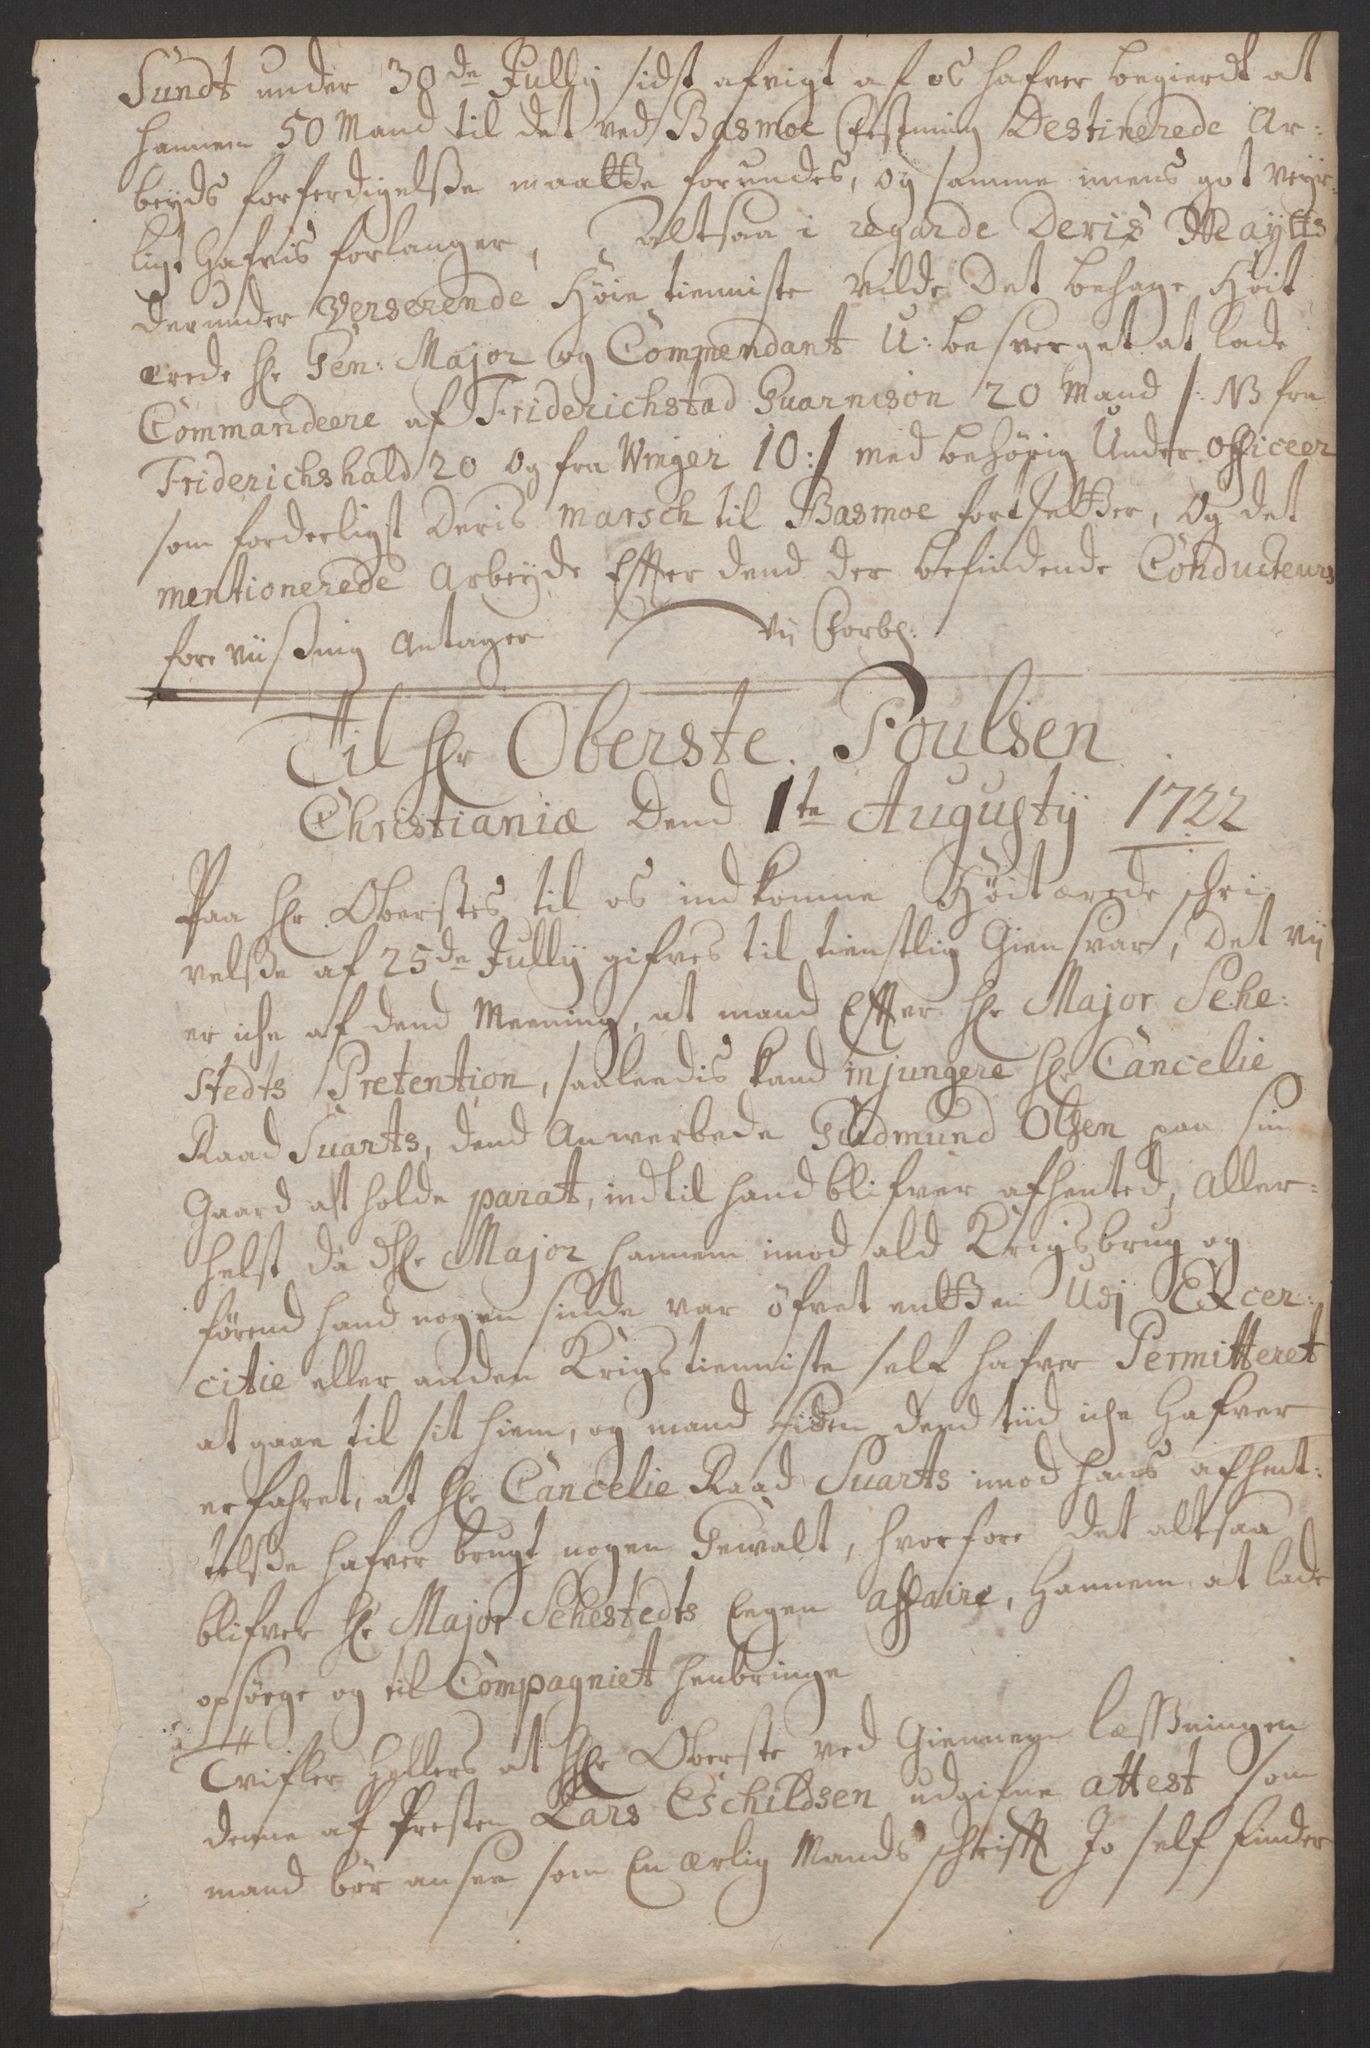 Sundt under 30de Jully sidst afvigt af os hafver begierdt at
hannem 50 Mand til det ved Basmoe Festning Destinerede Ar:
beyds forferdigelsse maatte forundes, og samme imens got veyr¬
ligt hafvis forlanger, altsaa i regarde Deris Maytts
derunder Verserende Høie tienniste vilde Det behage Høit
ærede Hr Gen: Major og Commendant U: besverget at lade
Commandeere af Friderichstad Guarnison 20 Mand /: NB fra
Friderichshald 20 og fra Winger 10:/ med behørig Under officeer
som forderligst Deris marsch til Basmoe fortsetter, og det
mentionerede Arbeyde Effter dend der befindende Conducteurs
foreviissning Antager vii Forbl:
Til Hr Oberste Poulsen
Christianiæ Dend 1te Augusty 1722
Paa Hr Oberstes til os indkomne Høitærede schri
velsse af 25de Jully gifves til tienstlig Giensvar, Det vij
er iche af dend Meening, at mand Effter Hr Major Sehe:
stedts Pretention, saaleedis kand injungere Hr Cancelie
Raad Suarts, dend Anwerbede Gudmund Olsen paa sin
Gaard at holde parat, indtil hand blifver afhented, Aller¬
helst da Hr Major hannem imod ald Krigsbrug og
førend hand nogen sinde var øfvet entten Udj Excer:
citie eller anden Krigstienniste self hafver Permitteret
at gaae til sit hiem, og mand siden dend tiid iche hafver
erfahret, at Hr Cancelie Raad Suarts imod hans afhent:
telsse hafver brugt nogen Gewalt, hvorfore det altsaa
blifver Hr Major Sehestedts Eegen affaire, hannem at lade
opsøege og til Compagniet henbringe
Tvifler Hellers at Hr Oberste ved Giennem læssningen
denne af Presten Lars Eschildsen udgifne attest som
mand bør ansee som En ærlig Mands schrifft Jo self finder